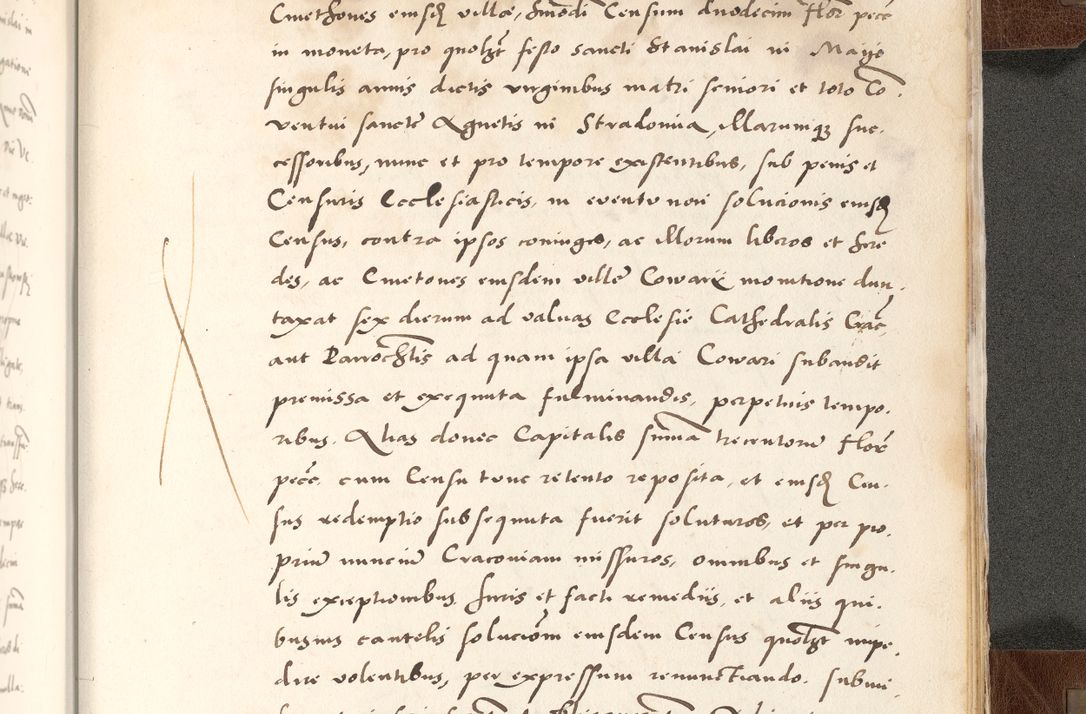 Cmethones eiusdẽ villæ, huiusmõdi Censum duodecim Flor̃ pecẽ
in moneta, pro quolibet festo sancti Stanislai in Mayo
singulis annis dictis virginibus matri seniori et toto Cõ-
ventui sanctæ Agnetis in Stradomia, illarumq3 suc-
cessoribus, nunc et pro tempore existentibus, sub penis et
Censuris Ecclesiasticis, in eventu non solucionis eiusdẽ
Census, contra ipsos coniuges, ac illorum liberos et here-
des, ac Cmetones eiusdem villæ Cowarii monitione dun-
taxat sex dierum ad valvas Ecclesie Cathedralis Crac̃
aut Parrochĩlis ad quam ipsa villa Cowari subaudit
premissa et exequuta fulminandis, perpetuis tempo-
ribus. Alias donec Capitalis sũma trecentorũ Flor̃
pecẽ cum Censu tunc retento reposita, et eiusdẽ Cen-
sus redemptio subsequuta fuerit soluturos, et per pro-
prium nuncium Cracoviam missuros, omnibus et singu-
lis exceptionibus Iuris et facti remediis, et aliis qui-
busuis cautelis solucionẽ eiusdem Census quolibet impe-
dire volentibus, per expressum renunctiando. submi-